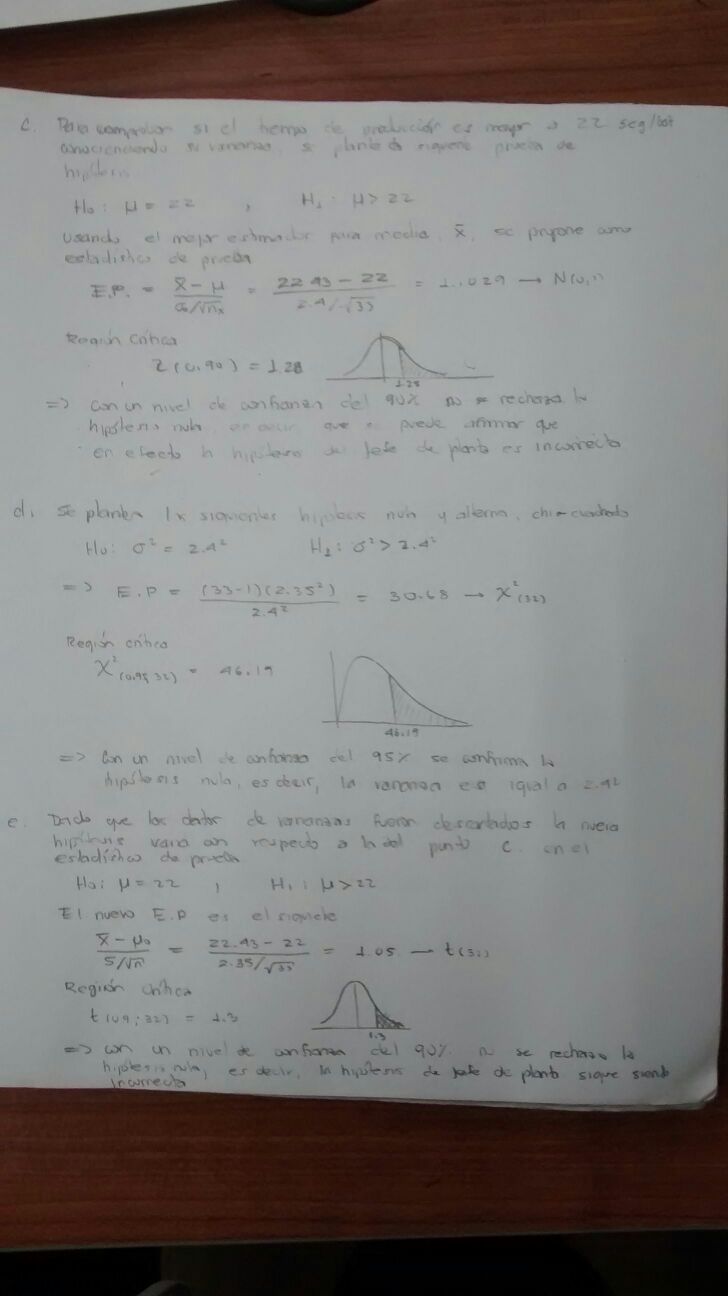 c. Para comprobar si el tiempo de producción es mayor a 22 seg/bot
conociendo su varianza, se plantea siguiente prueba de
hipótesis
H₀: μ = 22 , H₁: μ > 22
Usando el mejor estimador para media, x̄, se propone como
estadístico de prueba
E.P. = (x̄ - μ)/(σ/√n) = (22.43 - 22)/(2.4/√33) = 1.029 → N(0,1)
Región Crítica
Z(0.90) = 1.28
1.28
=> Con un nivel de confianza del 90% no se rechaza la
hipótesis nula, es decir, que se puede afirmar que
en efecto la hipótesis del Jefe de planta es incorrecta
d. Se plantea las siguientes hipótesis nula y alterna, chi-cuadrado
H₀: σ² = 2.4² H₁: σ² > 2.4²
=> E.P = (33-1)(2.35²)/2.4² = 30.68 → X²(32)
Región crítica
X²(0.95, 32) = 46.19
46.19
=> Con un nivel de confianza del 95% se confirma la
hipótesis nula, es decir, la varianza es igual a 2.4²
e. Dado que los datos de varianzas fueron descartados la nueva
hipótesis varia con respecto a la del punto C. en el
estadístico de prueba
H₀: μ = 22 , H₁: μ > 22
El nuevo E.P es el siguiente
(x̄ - μ₀)/(S/√n) = (22.43 - 22)/(2.35/√33) = 1.05 → t(32)
Región Crítica
t(0.9; 32) = 1.3
1.3
=> con un nivel de confianza del 90% no se rechaza la
hipótesis nula, es decir, la hipótesis de jefe de planta sigue siendo
incorrecta